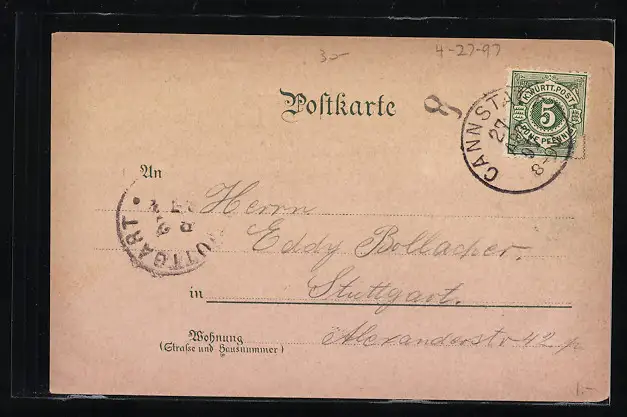 30-
4-27-97
Postkarte
8
K.WÜRTT.POST
5
FÜNF PFENNIG
CANNSTATT
27
An
Herrn
Eddy Bollacher.
STUTTGART
in Stuttgart.
Wohnung
(Straße und Hausnummer)
Alexanderstr 42 p
1.-